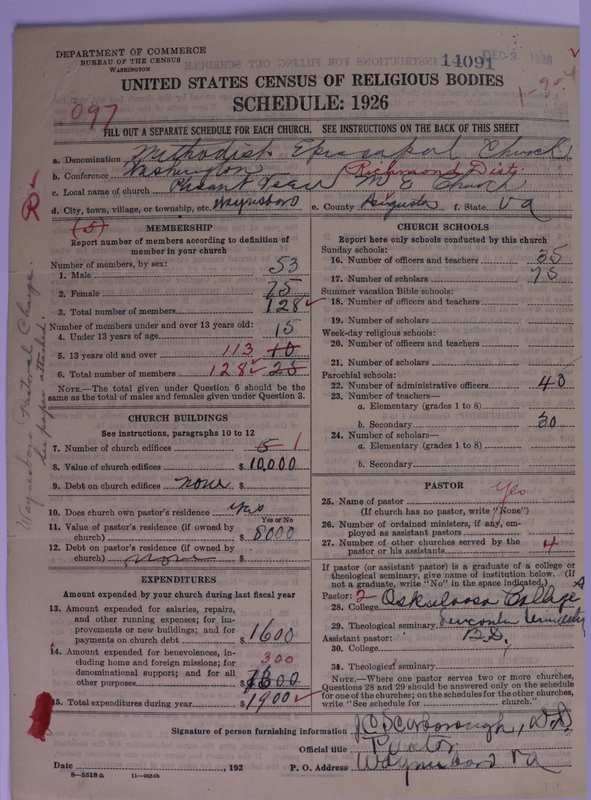 DEPARTMENT OF COMMERCE
BUREAU OF THE CENSUS
WASHINGTON
14091
DEC 8 1926
1-3-4
UNITED STATES CENSUS OF RELIGIOUS BODIES
SCHEDULE: 1926
097
FILL OUT A SEPARATE SCHEDULE FOR EACH CHURCH. SEE INSTRUCTIONS ON THE BACK OF THIS SHEET
a. Denomination Methodist Episcopal Church
b. Conference Washington Richmond Dist.
c. Local name of church Pleasant View M E Church
d. City, town, village, or township, etc. Waynesboro e. County Augusta f. State Va
(5)
MEMBERSHIP
Report number of members according to definition of member in your church
Number of members, by sex:
1. Male 53
2. Female 75
3. Total number of members 128
Number of members under and over 13 years old:
4. Under 13 years of age 15
5. 13 years old and over 113 10
6. Total number of members 128 25
NOTE.—The total given under Question 6 should be the same as the total of males and females given under Question 3.
CHURCH BUILDINGS
See instructions, paragraphs 10 to 12
7. Number of church edifices 5 1
8. Value of church edifices $ 10,000
9. Debt on church edifices none $
10. Does church own pastor's residence yes
Yes or No
11. Value of pastor's residence (if owned by church) $ 8000
12. Debt on pastor's residence (if owned by church) none $
EXPENDITURES
Amount expended by your church during last fiscal year
13. Amount expended for salaries, repairs, and other running expenses; for improvements or new buildings; and for payments on church debt $ 1600
14. Amount expended for benevolences, including home and foreign missions; for denominational support; and for all other purposes 300 $
15. Total expenditures during year $ 1900
CHURCH SCHOOLS
Report here only schools conducted by this church
Sunday schools:
16. Number of officers and teachers 35
17. Number of scholars 75
Summer vacation Bible schools:
18. Number of officers and teachers
19. Number of scholars
Week-day religious schools:
20. Number of officers and teachers
21. Number of scholars
Parochial schools:
22. Number of administrative officers 40
23. Number of teachers—
a. Elementary (grades 1 to 8)
b. Secondary 30
24. Number of scholars—
a. Elementary (grades 1 to 8)
b. Secondary
PASTOR
25. Name of pastor yes
(If church has no pastor, write "None")
26. Number of ordained ministers, if any, employed as assistant pastors
27. Number of other churches served by the pastor or his assistants 4
If pastor (or assistant pastor) is a graduate of a college or theological seminary, give name of institution below. (If not a graduate, write "No" in the space indicated.)
Pastor: 2
28. College Oskaloosa College
29. Theological seminary Lincoln University
Assistant pastor: B.D.
30. College
31. Theological seminary
NOTE.—Where one pastor serves two or more churches, Questions 28 and 29 should be answered only on the schedule for one of the churches; on the schedules for the other churches, write "See schedule for church."
Signature of person furnishing information J C Scarborough, D.D.
Official title Pastor
Date , 192 P. O. Address Waynesboro Va
8—5518 a 11—9664b
Waynesboro Pastoral Charge.
See paper attached.